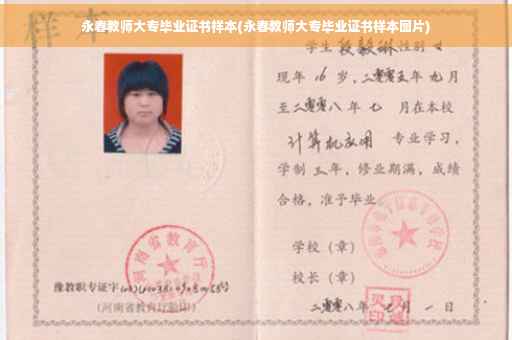 永春教师大专毕业证书样本(永春教师大专毕业证书样本图片)
样本
学生段毅琳性别女
现年16岁，二零零五年九月
至二零零八年七 月在本校
计算机应用 专业学习，
学制三年，修业期满，成绩
合格，准予毕业
学校（章）
校长（章）
河南省教育厅
豫教职专证字
(河南省教育厅验印)
二零零八年 月一日